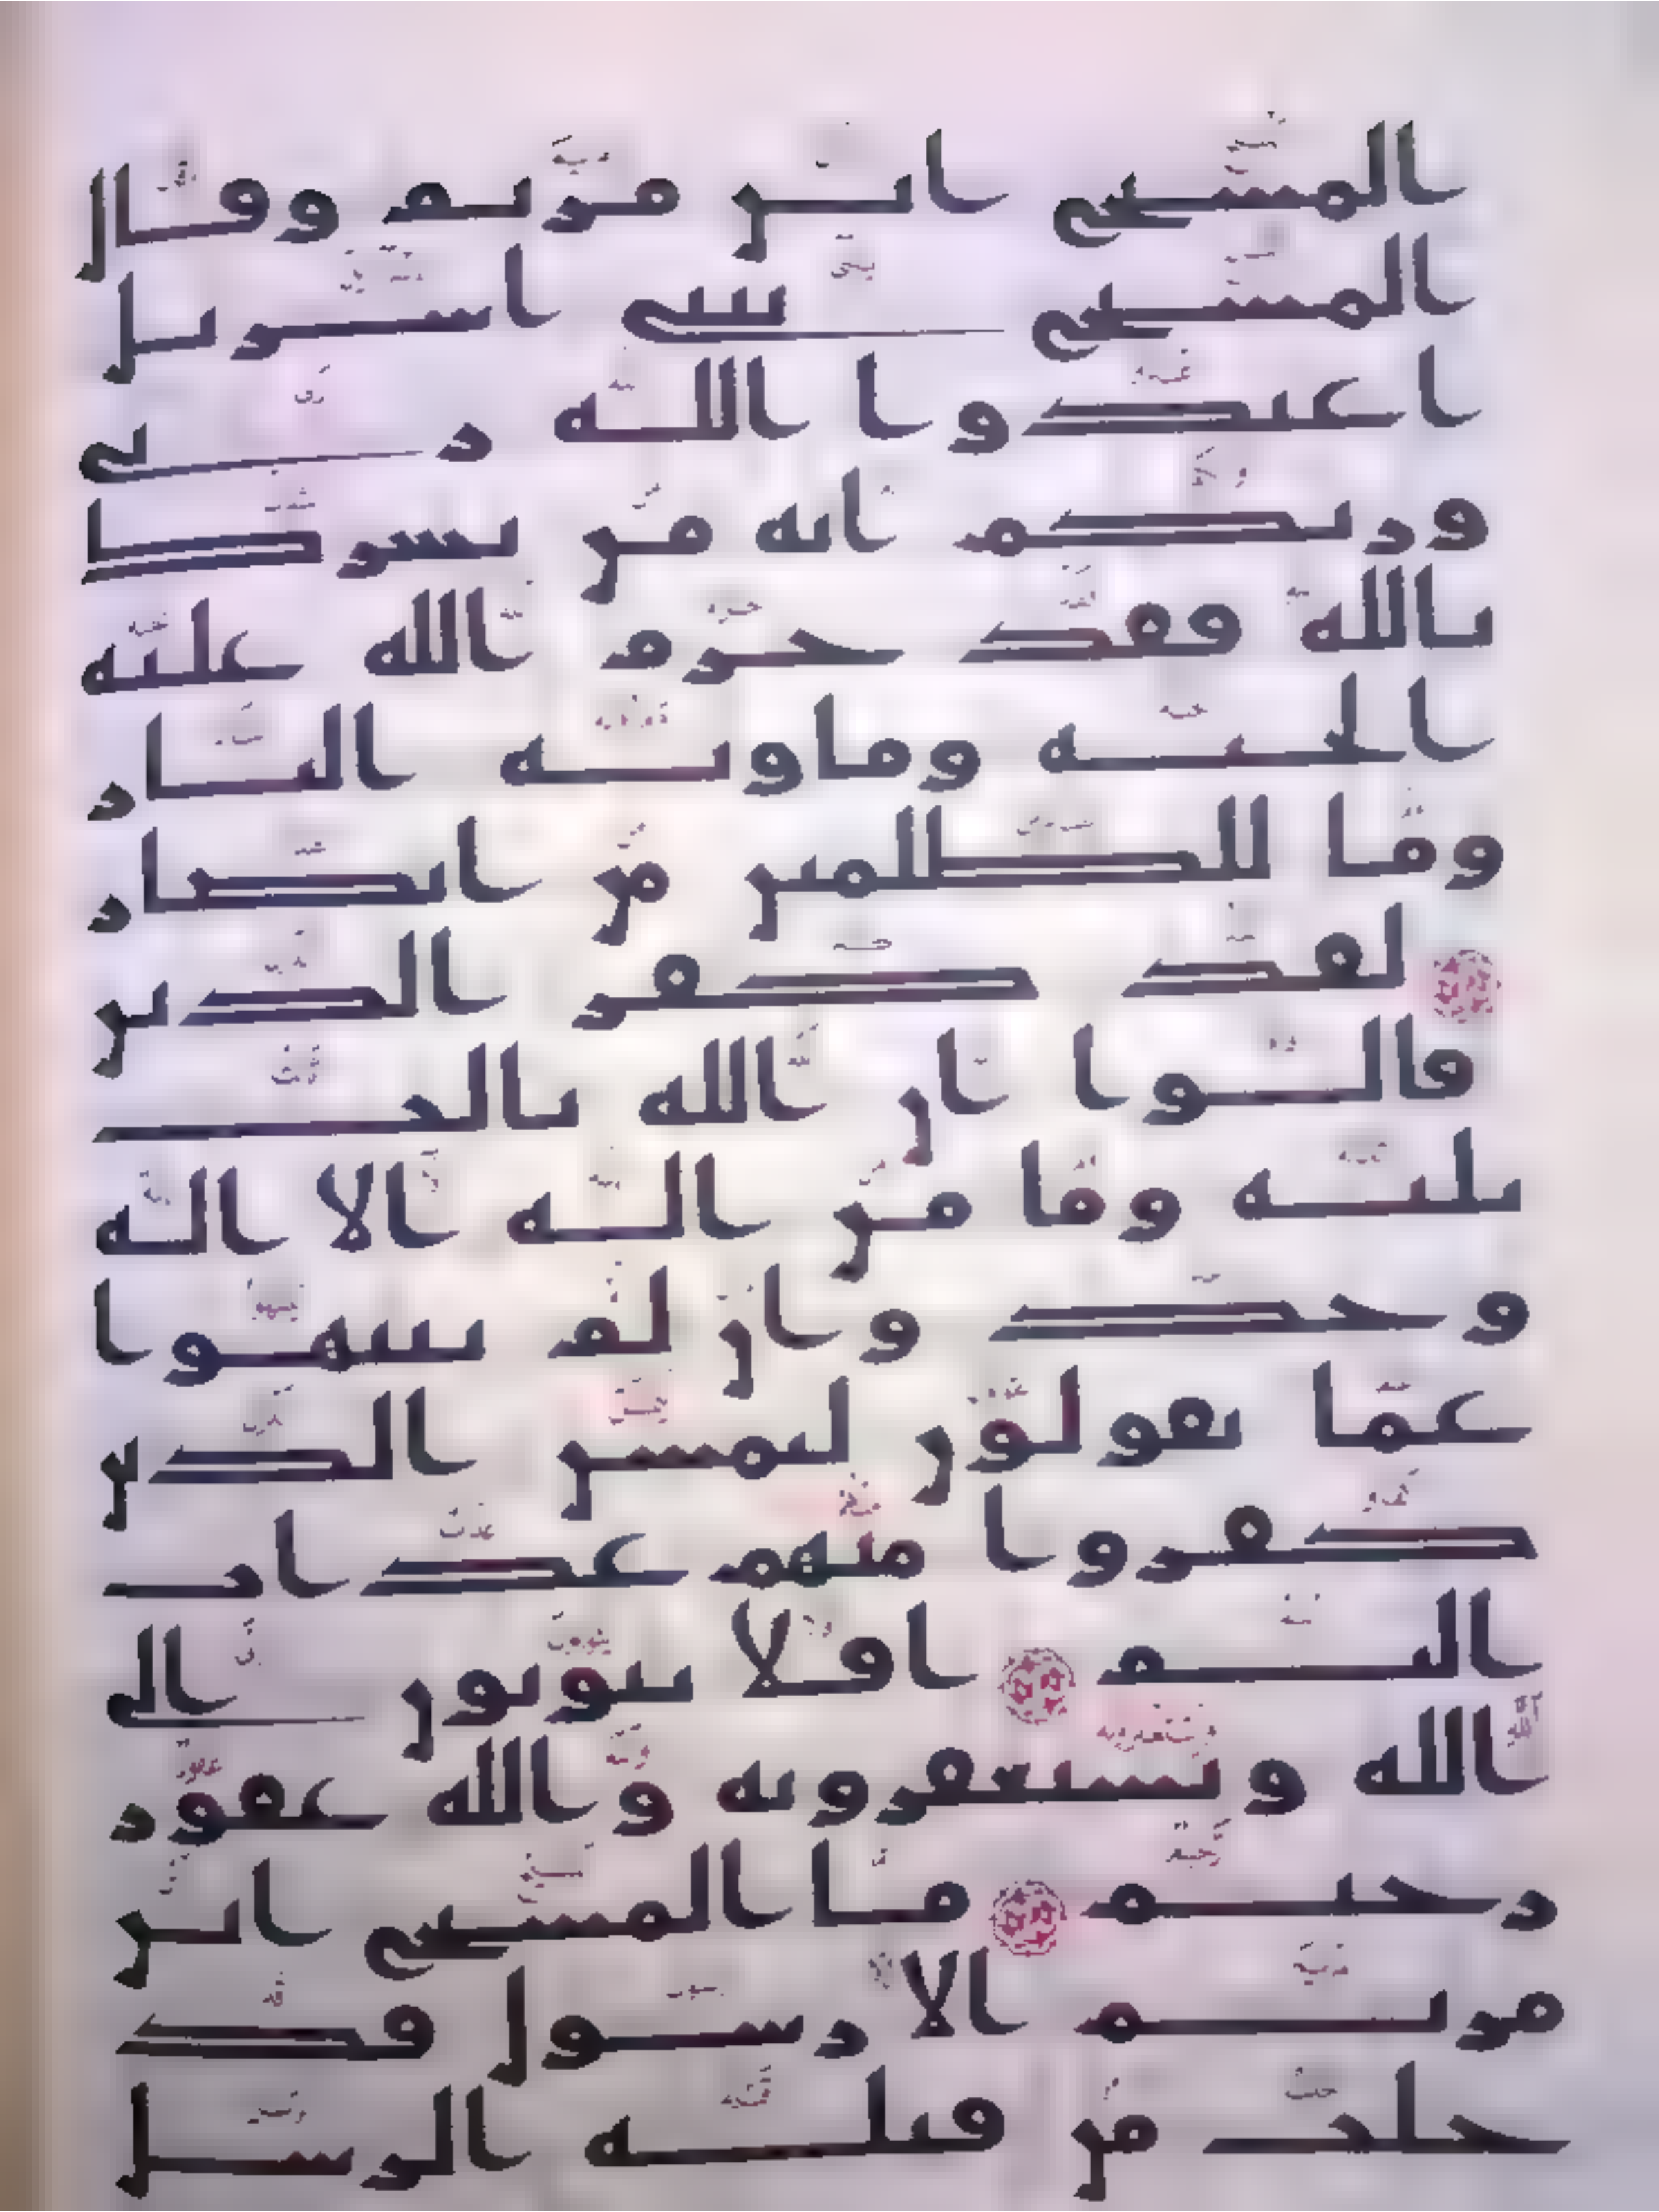 المسيح ابن مريم وقال
المسيح يبنى اسريل
اعبدوا الله ربى
وربكم انه من يشرك
بالله فقد حرم الله عليه
الجنه وماويه النار
وما للظلمين من انصار
لقد كفر الذين
قالوا ان الله ثالث
ثلثه وما من اله الا اله
وحد وان لم ينتهوا
عما يقولون ليمسن الذين
كفروا منهم عذاب
اليم افلا يتوبون الى
الله ويستغفرونه والله غفور
رحيم ما المسيح ابن
مريم الا رسول قد
خلت من قبله الرسل